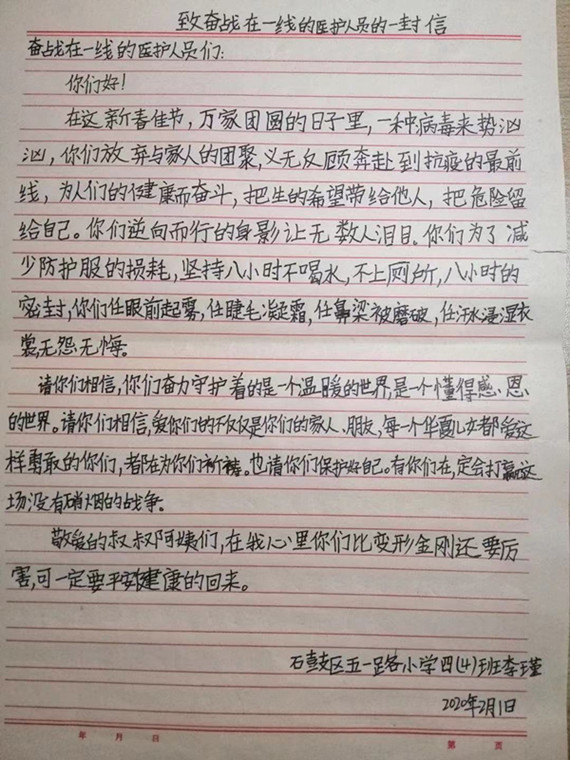 致奋战在一线的医护人员的一封信
奋战在一线的医护人员们:
你们好!
在这新春佳节,万家团圆的日子里,一种病毒来势汹
汹,你们放弃与家人的团聚,义无反顾奔赴到抗疫的最前
线,为人们的健康而奋斗,把生的希望带给他人,把危险留
给自己。你们逆向而行的身影让无数人泪目。你们为了减
少防护服的损耗,坚持八小时不喝水,不上厕所,八小时的
密封,你们任眼前起雾,任睫毛凝霜,任鼻梁被磨破,任汗水浸湿衣
裳,无怨无悔。
请你们相信,你们奋力守护着的是一个温暖的世界,是一个懂得感恩
的世界。请你们相信,爱你们的不仅仅是你们的家人、朋友,每一个华夏儿女都爱这
样勇敢的你们,都在为你们祈祷。也请你们保护好自己。有你们在,定会打赢这
场没有硝烟的战争。
敬爱的叔叔阿姨们,在我心里你们比变形金刚还要厉
害,可一定要平安健康的回来。
石鼓区五一路小学四(4)班李瑾
2020年2月1日
年 月 日 第 页